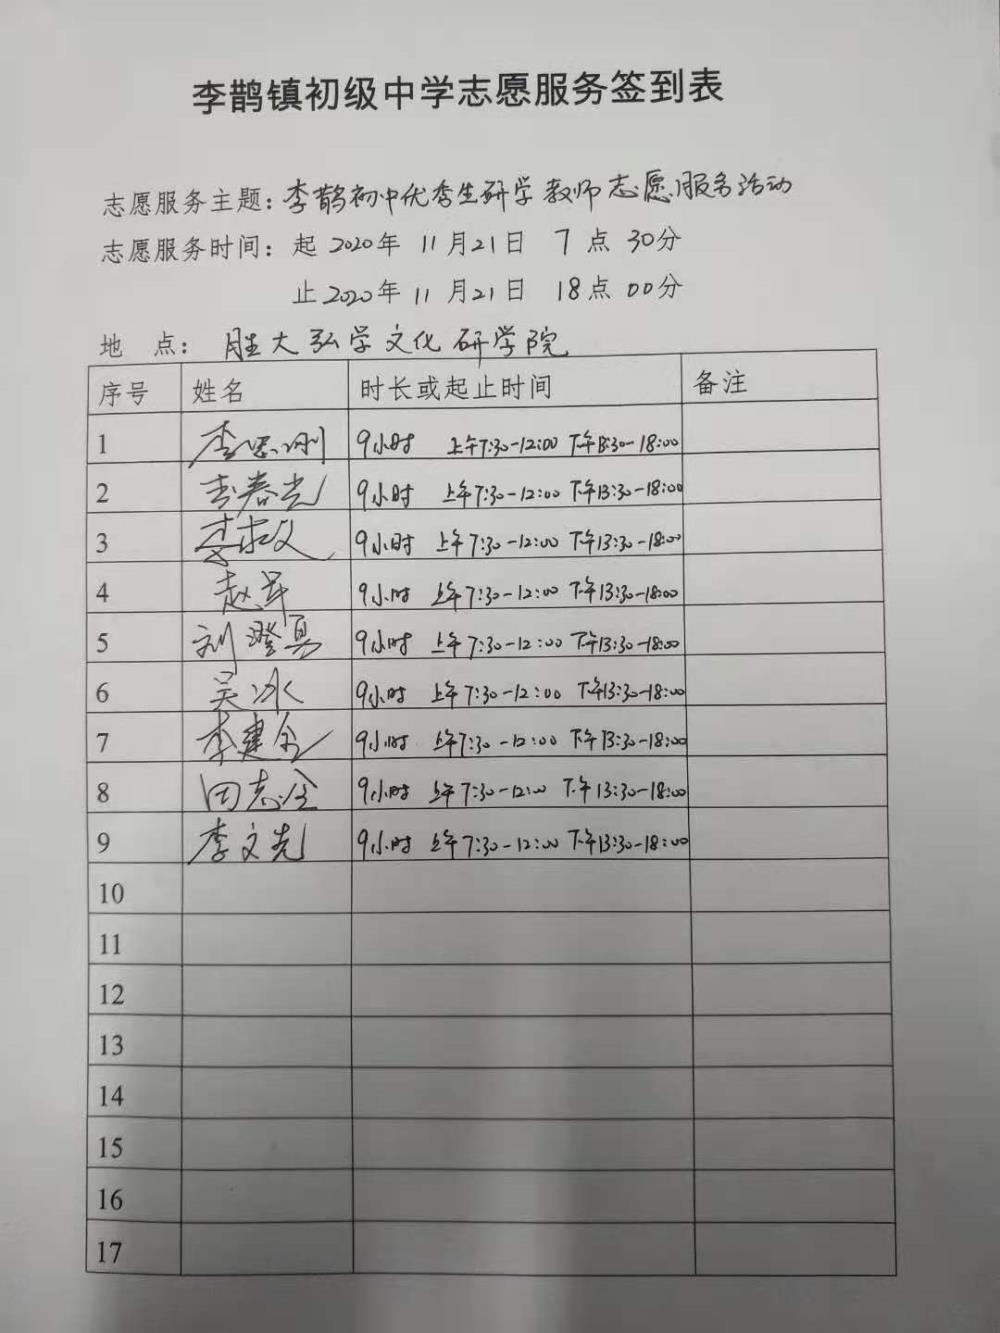 李鹊镇初级中学志愿服务签到表
志愿服务主题：李鹊初中优秀生研学教师志愿服务活动
志愿服务时间：起 2020年 11月21日 7点 30分
止2020年 11月21日 18点 00分
地 点： 胜大弘学文化研学院
序号 姓名 时长或起止时间 备注
1 李思刚 9小时 上午7:30-12:00 下午13:30-18:00
2 李春光 9小时 上午7:30-12:00 下午13:30-18:00
3 李 9小时 上午7:30-12:00 下午13:30-18:00
4 赵 9小时 上午7:30-12:00 下午13:30-18:00
5 刘澄勇 9小时 上午7:30-12:00 下午13:30-18:00
6 吴冰 9小时 上午7:30-12:00 下午13:30-18:00
7 李建 9小时 上午7:30-12:00 下午13:30-18:00
8 田志全 9小时 上午7:30-12:00 下午13:30-18:00
9 李文先 9小时 上午7:30-12:00 下午13:30-18:00
10
11
12
13
14
15
16
17